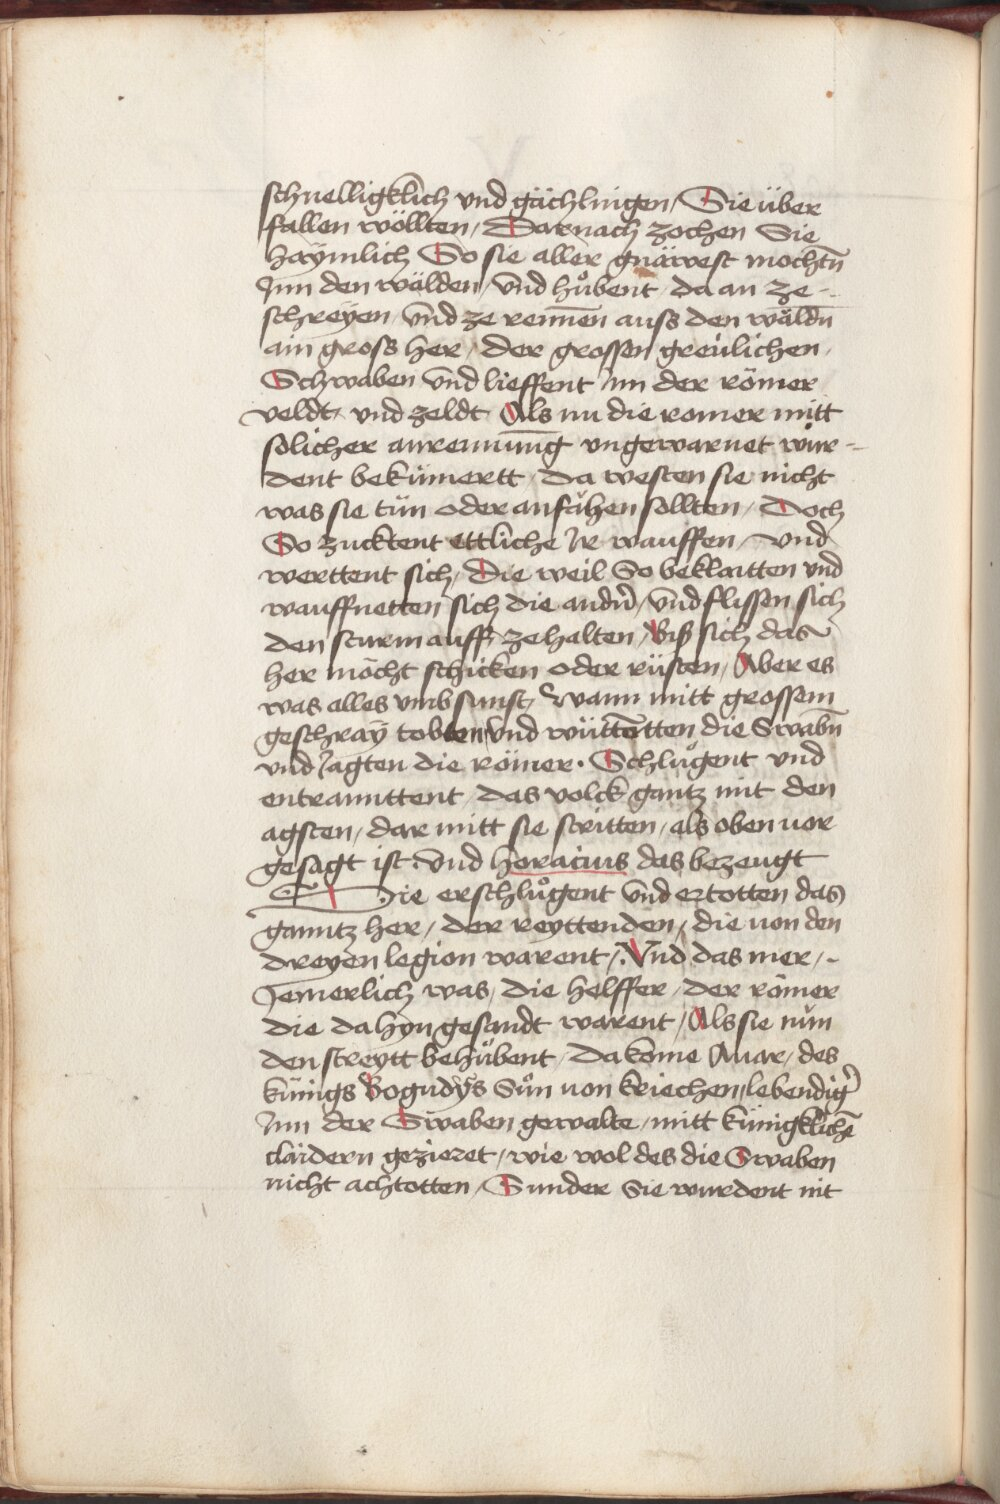 schnelligklich vnd gächlingen / Sie über
fallen wöllten / Darnach zochen Sie
haymlich So sie aller gnäwest mochtn̄
Jnn den wälden / vnd hůbent / da an ze -
schreÿen vnd ze rennen auss den wäldn̄
ain gross her / der grossen greülichen /
Schwaben vnd lieffent Jnn der römer
veldt / vnd zeldt Als nu die romer mitt
solicher anrennung vngewarnet wur-
dent bekümertt / da westen sie nicht
was sie tün oder anfăhen sollten / Doch
So zucktent ettliche Jr wauffen / vnd
werttent sich / Die weil So beklaitten vnd
wauffnetten sich die andn̄ / vnd flissen sich
den sturm auff ze halten / Biß sich das
her mőcht schicken oder rüsten / Aber es
was alles vmb sunst / Wann mitt grossem
geschraÿ tobten vnd wüttotten die Swabn̄
vnd Jagten die römer · Schlůgent vnd
entranttent das volck gantz mit den
agsten / dar mitt sie stritten / als oben vor
gesagt ist vnd horacius das bezeugt
Die erschlůgent vnd ertotten das
ganntz her / der reyttenden / die von den
dreyen legion warent / Vnd das mer /
Jemerlich was / die helffer / der römer
die da hyn gesandt warent / Als sie nŭn
den streytt behůbent / da kome Auar / des
künigs Bogudÿs Sůn von kriechen / lebendig̉
Jnn der Swaben gewalte / mitt künigklichē
claidern gezieret / wie wol des die Swaben
nicht achtotten / Sunder Sie wurdent mit